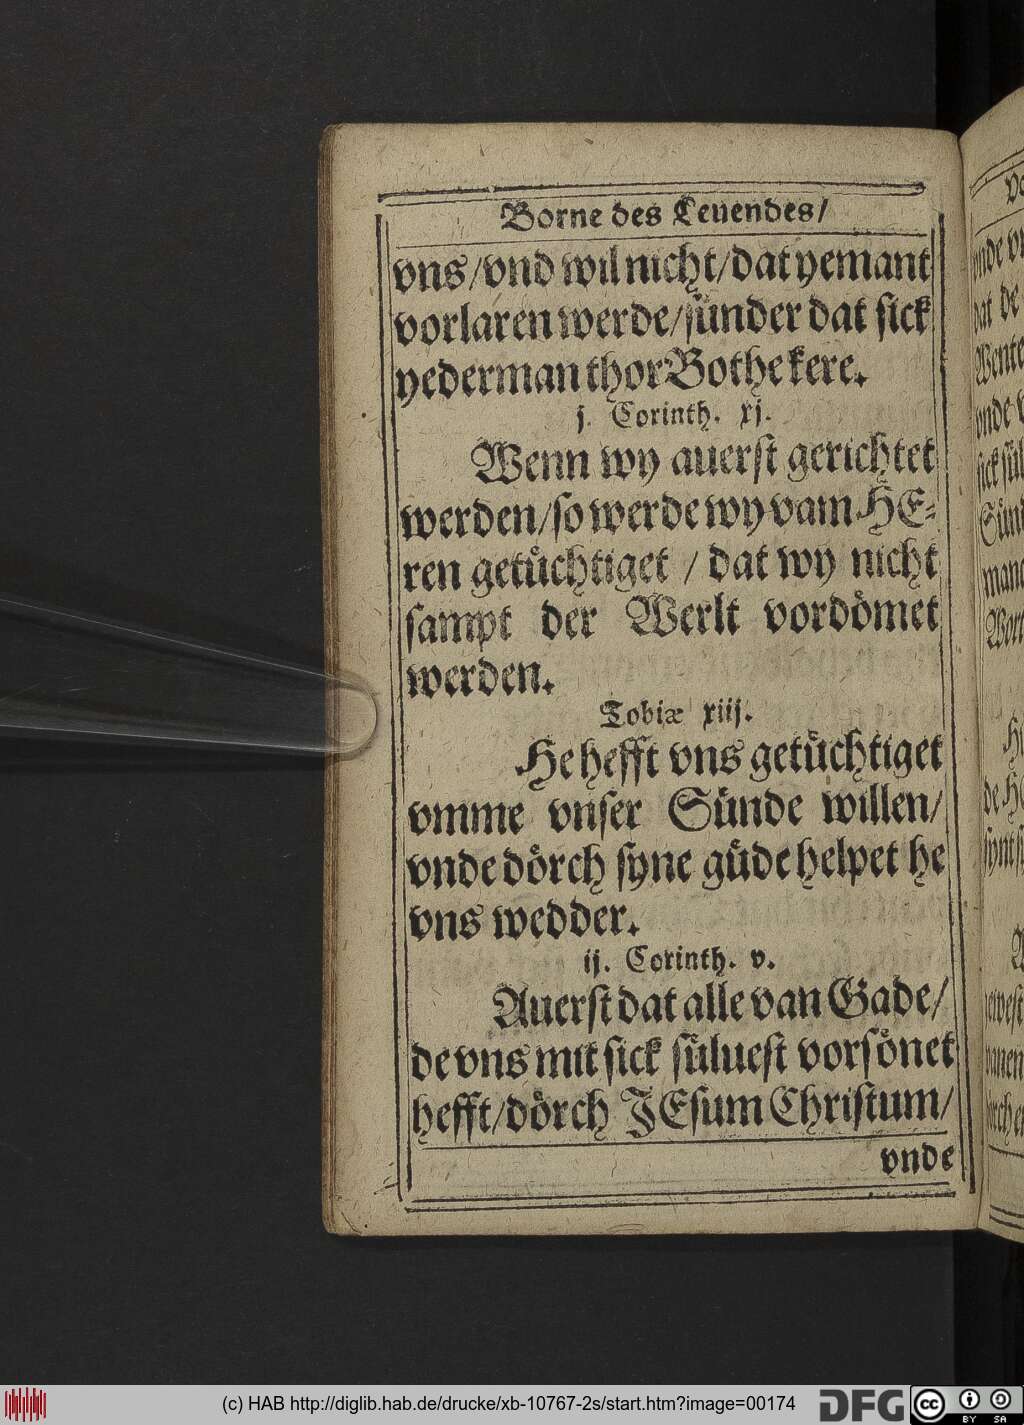 Borne des Leuendes/
vns/vnd wil nicht/dat yemant
vorlaren werde/sünder dat sick
yederman thor Bothe kere.
j. Corinth. xj.
Wenn wy auerst gerichtet
werden/so werde wy vam HE-
ren getüchtiget / dat wy nicht
sampt der Werlt vordömet
werden.
Tobiæ xiij.
He hefft vns getüchtiget
vmme vnser Sünde willen/
vnde dörch syne güde helpet he
vns wedder.
ij. Corinth. v.
Auerst dat alle van Gade/
de vns mit sick süluest vorsönet
hefft/dörch JEsum Christum/
vnde
(c) HAB http://diglib.hab.de/drucke/xb-10767-2s/start.htm?image=00174
DFG
cc
BY SA